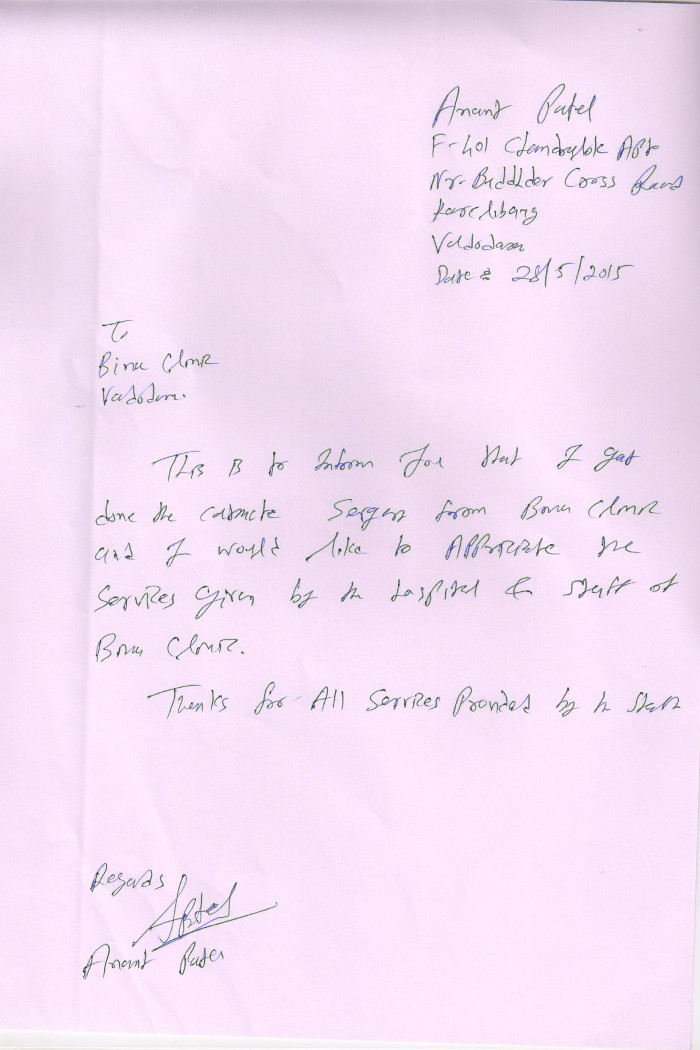 Anant Patel
F-401 Chandralok Apt
Nr- Cross Road
Karelibang
Vadodara
Date : 28/5/2015
To
Binu Clinic
Vadodara.
This is to Inform You that I got
done the Sergery from Binu Clinic
and I would like to Appriciate the
Services given by the hospital & staff of
Binu Clinic.
Thanks for All Services Provided by the staff
Regards
APatel
Anant Patel